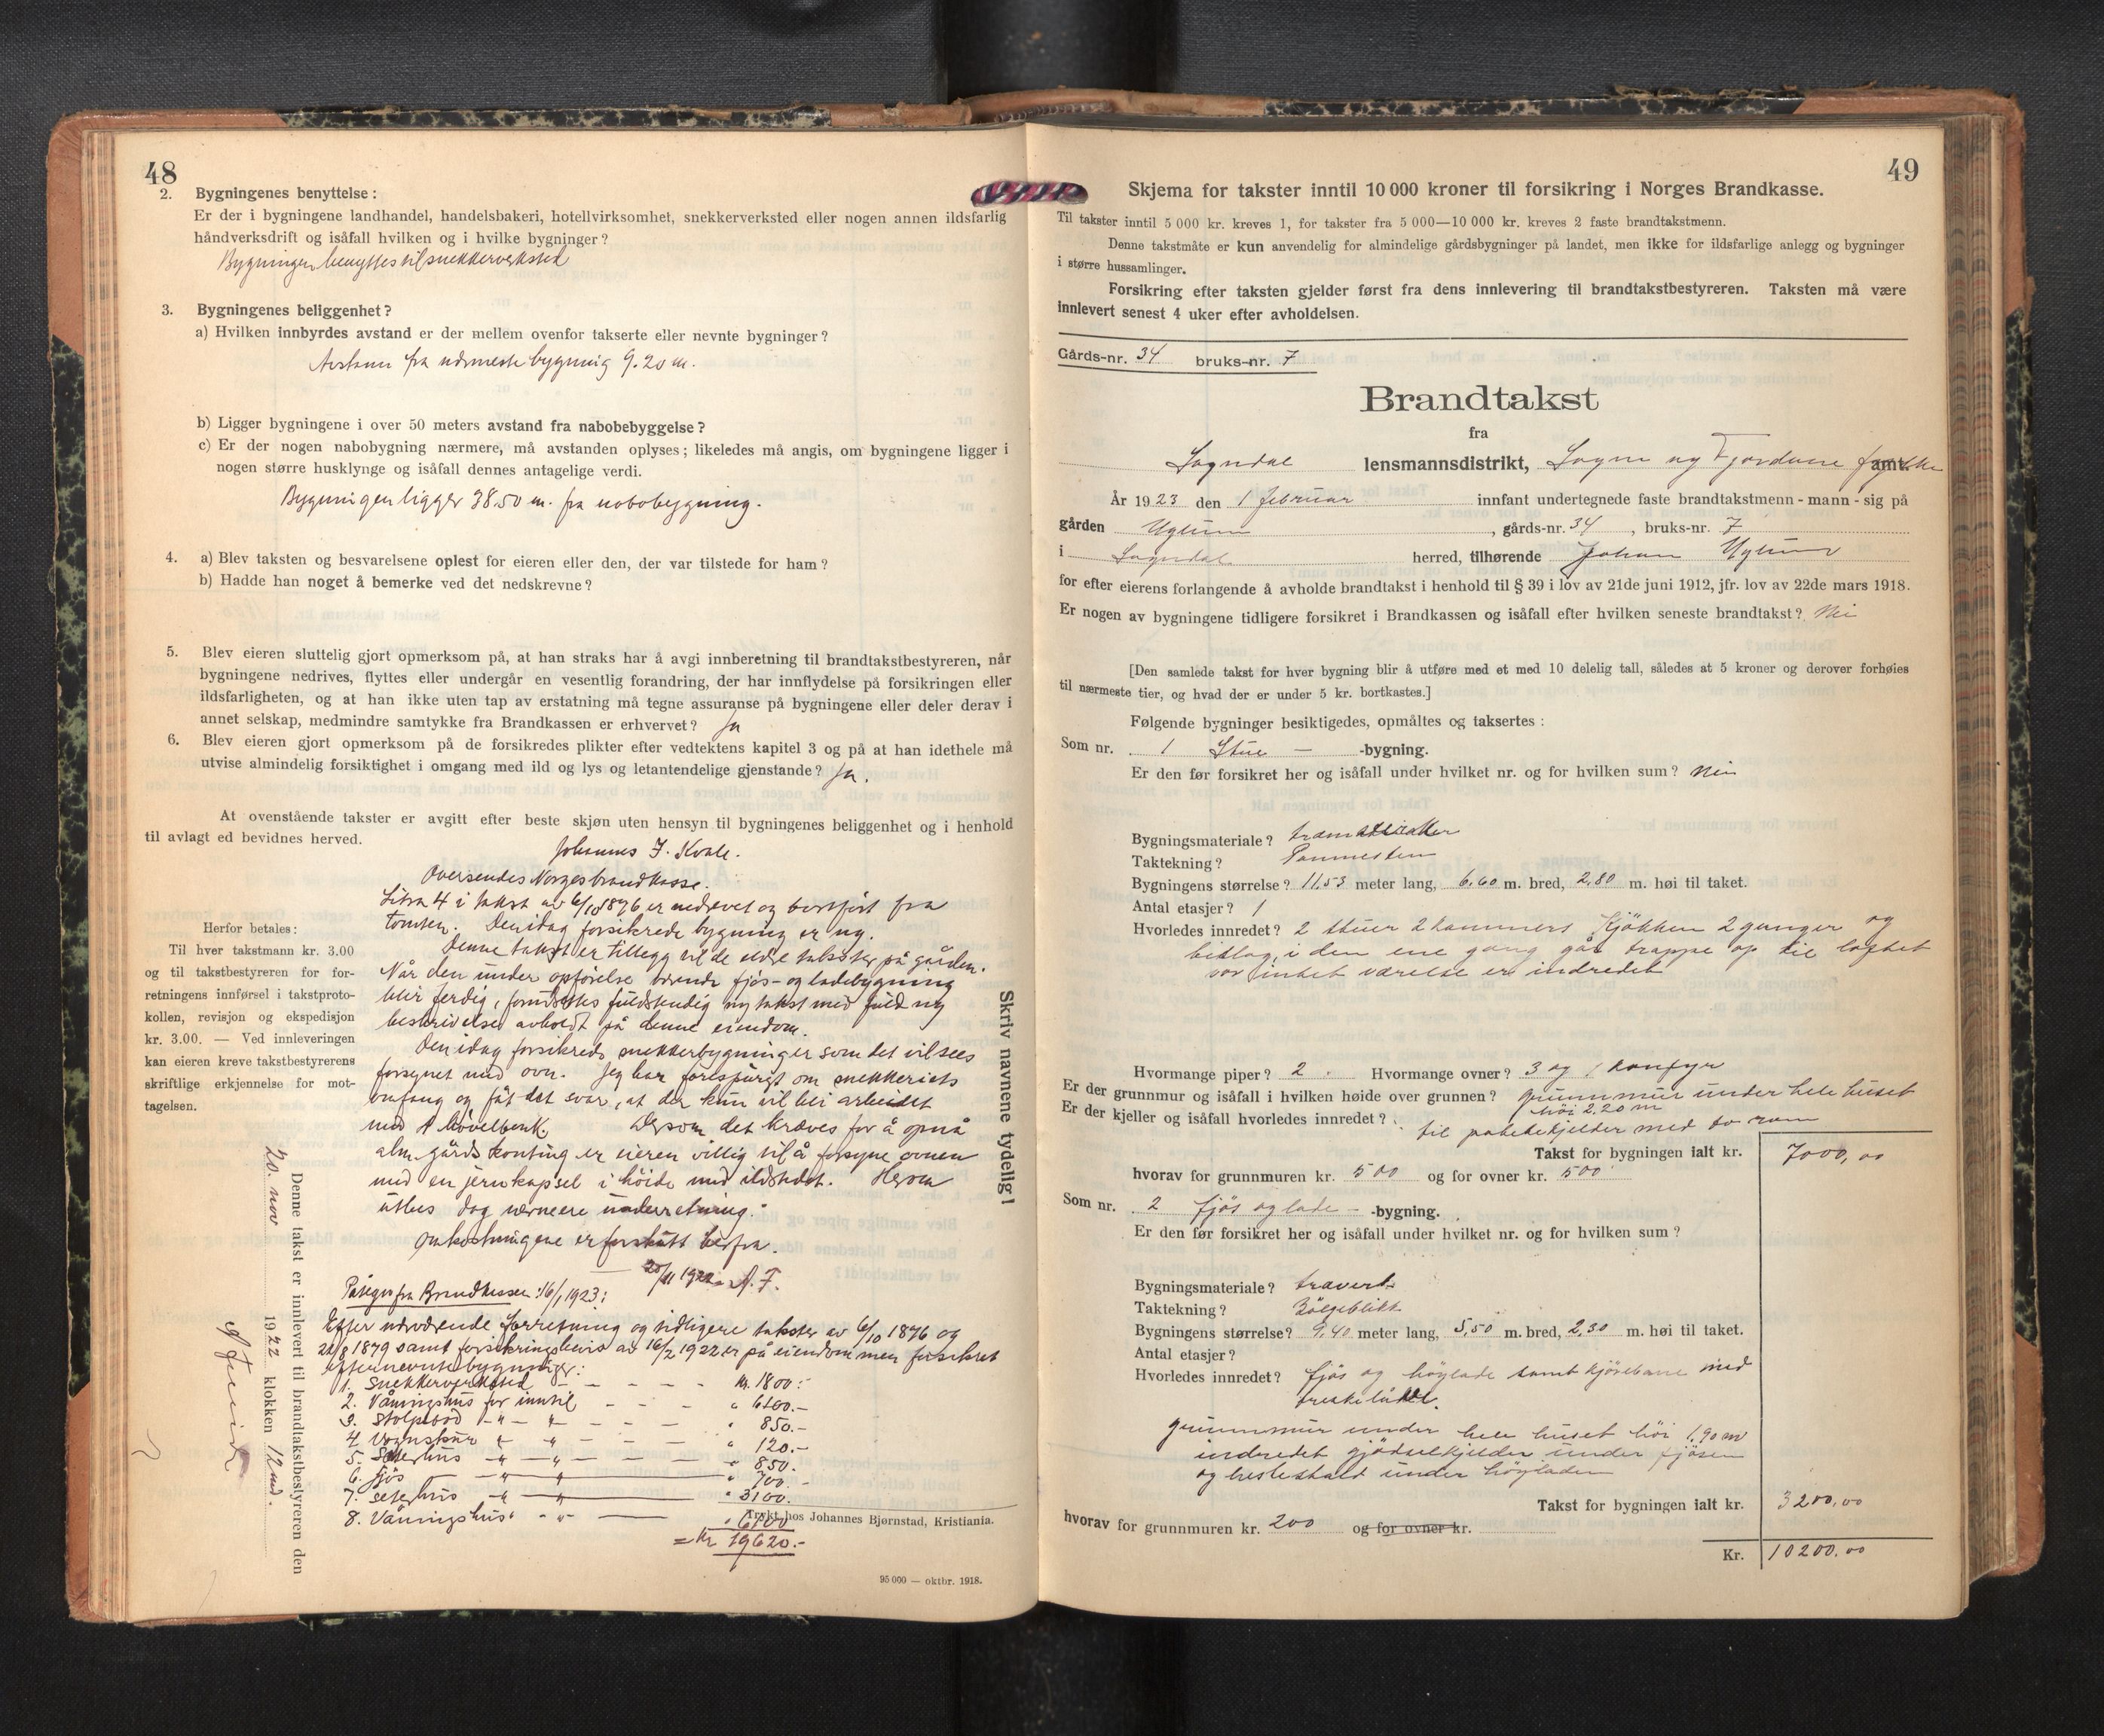 48
2. Bygningenes benyttelse:
Er der i bygningene landhandel, handelsbakeri, hotellvirksomhet, snekkerverksted eller nogen annen ildsfarlig
håndverksdrift og isåfall hvilken og i hvilke bygninger?
Bygningen benyttes til snekkerverksted
3. Bygningenes beliggenhet?
a) Hvilken innbyrdes avstand er der mellem ovenfor takserte eller nevnte bygninger?
Avstann fra nærmeste bygning 9.20 m.
b) Ligger bygningene i over 50 meters avstand fra nabobebyggelse?
c) Er der nogen nabobygning nærmere, må avstanden oplyses; likeledes må angis, om bygningene ligger i
nogen større husklynge og isåfall dennes antagelige verdi.
Bygningen ligger 38.50 m. fra nobobygning.
4. a) Blev taksten og besvarelsene oplest for eieren eller den, der var tilstede for ham?
b) Hadde han noget å bemerke ved det nedskrevne?
5. Blev eieren sluttelig gjort opmerksom på, at han straks har å avgi innberetning til brandtakstbestyreren, når
bygningene nedrives, flyttes eller undergår en vesentlig forandring, der har innflydelse på forsikringen eller
ildsfarligheten, og at han ikke uten tap av erstatning må tegne assuranse på bygningene eller deler derav i
annet selskap, medmindre samtykke fra Brandkassen er erhvervet? Ja
6. Blev eieren gjort opmerksom på de forsikredes plikter efter vedtektens kapitel 3 og på at han idethele må
utvise almindelig forsiktighet i omgang med ild og lys og letantendelige gjenstande? Ja.
At ovenstående takster er avgitt efter beste skjøn uten hensyn til bygningenes beliggenhet og i henhold
til avlagt ed bevidnes herved.
Johannes J. Kvale.
Oversendes Norges brandkasse.
Litra 4 i takst av 6/10 1876 er nedrevet og bortført fra
tomten. Den idag forsikrede bygning er ny.
Denne takst er tillegg til de eldre takster på gården.
Når den under opførelse værende fjøs- og ladebygning
blir ferdig, forutsettes fuldstendig ny takst med fuld ny
beskrivelse avholdt på denne eiendom.
Den idag forsikrede snekkerbygning er som det vil sees
forsynet med ovn. Jeg har forespurgt om snekkeriets
omfang og fåt det svar, at der kun vil bli arbeidet
med 1 høvelbenk. Dersom det kræves for å opnå
alm. gårdskonting er eieren villig til å forsyne ovnen
med en jernkapsel i høide med ildstedet. Herom
utbes dog nærmere underretning.
Omkostningene er forskutt herfra.
20/11 1922 A. F.
Påtegn fra Brandkassen 16/1 1923:
Efter nærværende forretning og tidligere takster av 6/10 1876 og
21/8 1879 samt forsikringsbevis av 16/2 1922 er på eiendommen forsikret
efternevnte bygninger:
1. Snekkerverksted - - - - kr. 1800.-
2. Våningshus for inntil - - - " 6100.-
3. Stolpebod -"- " - - - " 850.-
4. Vognskur " " - - - " 120.-
5. Seterhus -"- " - - - " 850.-
6. Fjøs -"- " " 700.-
7. Seterhus -"- " " 3100.-
8. Våningshus -"- " 6100
= Kr 19620.-
Herfor betales:
Til hver takstmann kr. 3.00
og til takstbestyreren for for-
retningens innførsel i takstproto-
kollen, revisjon og ekspedisjon
kr. 3.00. — Ved innleveringen
kan eieren kreve takstbestyrerens
skriftlige erkjennelse for mot-
tagelsen.
Skriv navnene tydelig!
Denne takst er innlevert til brandtakstbestyreren den
20. nov 1922 klokken 12 md.
Trykt hos Johannes Bjørnstad, Kristiania.
95 000 — oktbr. 1918.
49
Skjema for takster inntil 10 000 kroner til forsikring i Norges Brandkasse.
Til takster inntil 5 000 kr. kreves 1, for takster fra 5 000—10 000 kr. kreves 2 faste brandtakstmenn.
Denne takstmåte er kun anvendelig for almindelige gårdsbygninger på landet, men ikke for ildsfarlige anlegg og bygninger
i større hussamlinger.
Forsikring efter taksten gjelder først fra dens innlevering til brandtakstbestyreren. Taksten må være
innlevert senest 4 uker efter avholdelsen.
Gårds-nr. 34 bruks-nr. 7
Brandtakst
fra
Sogndal lensmannsdistrikt, Sogn og Fjordane fylke amt.
År 1923 den 1 februar innfant undertegnede faste brandtakstmenn - mann - sig på
gården Uglum, gårds-nr. 34, bruks-nr. 7
i Sogndal herred, tilhørende Johan Uglum
for efter eierens forlangende å avholde brandtakst i henhold til § 39 i lov av 21de juni 1912, jfr. lov av 22de mars 1918.
Er nogen av bygningene tidligere forsikret i Brandkassen og isåfall efter hvilken seneste brandtakst? Nei
[Den samlede takst for hver bygning blir å utføre med et med 10 delelig tall, således at 5 kroner og derover forhøies
til nærmeste tier, og hvad der er under 5 kr. bortkastes.]
Følgende bygninger besiktigedes, opmåltes og taksertes:
Som nr. 1 Stue — -bygning.
Er den før forsikret her og isåfall under hvilket nr. og for hvilken sum? Nei
Bygningsmateriale? træmaterialer
Taktekning? Pannesten
Bygningens størrelse? 11,53 meter lang, 6,60 m. bred, 2,80 m. høi til taket.
Antal etasjer? 1
Hvorledes innredet? 2 stuer 2 kammers Kjøkken 2 ganger og
bitlag, i den ene gang går trappe op til loftet
vor intet værelse er indredet
Hvormange piper? 2. Hvormange ovner? 3 og 1 komfyr
Er der grunnmur og isåfall i hvilken høide over grunnen? grunnmur under hele huset
høi 2.20 m
Er der kjeller og isåfall hvorledes innredet? til potetekjelder med to rom
Takst for bygningen ialt kr. 7000,00
hvorav for grunnmuren kr. 500 og for ovner kr. 500
Som nr. 2 fjøs og lade — -bygning.
Er den før forsikret her og isåfall under hvilket nr. og for hvilken sum?
Bygningsmateriale? traverk
Taktekning? Bølgeblikk
Bygningens størrelse? 9,40 meter lang, 5,50 m. bred, 2,30 m. høi til taket.
Antal etasjer?
Hvorledes innredet? fjøs og høylade samt kjørebane med
grunnmur under hele huset høi 1,90 m
indredet gjødselkjelder under fjøsen
og hestestald under høyladen
Takst for bygningen ialt kr. 3200,00
hvorav for grunnmuren kr. 200 og for ovner kr.
Kr. 10200.00